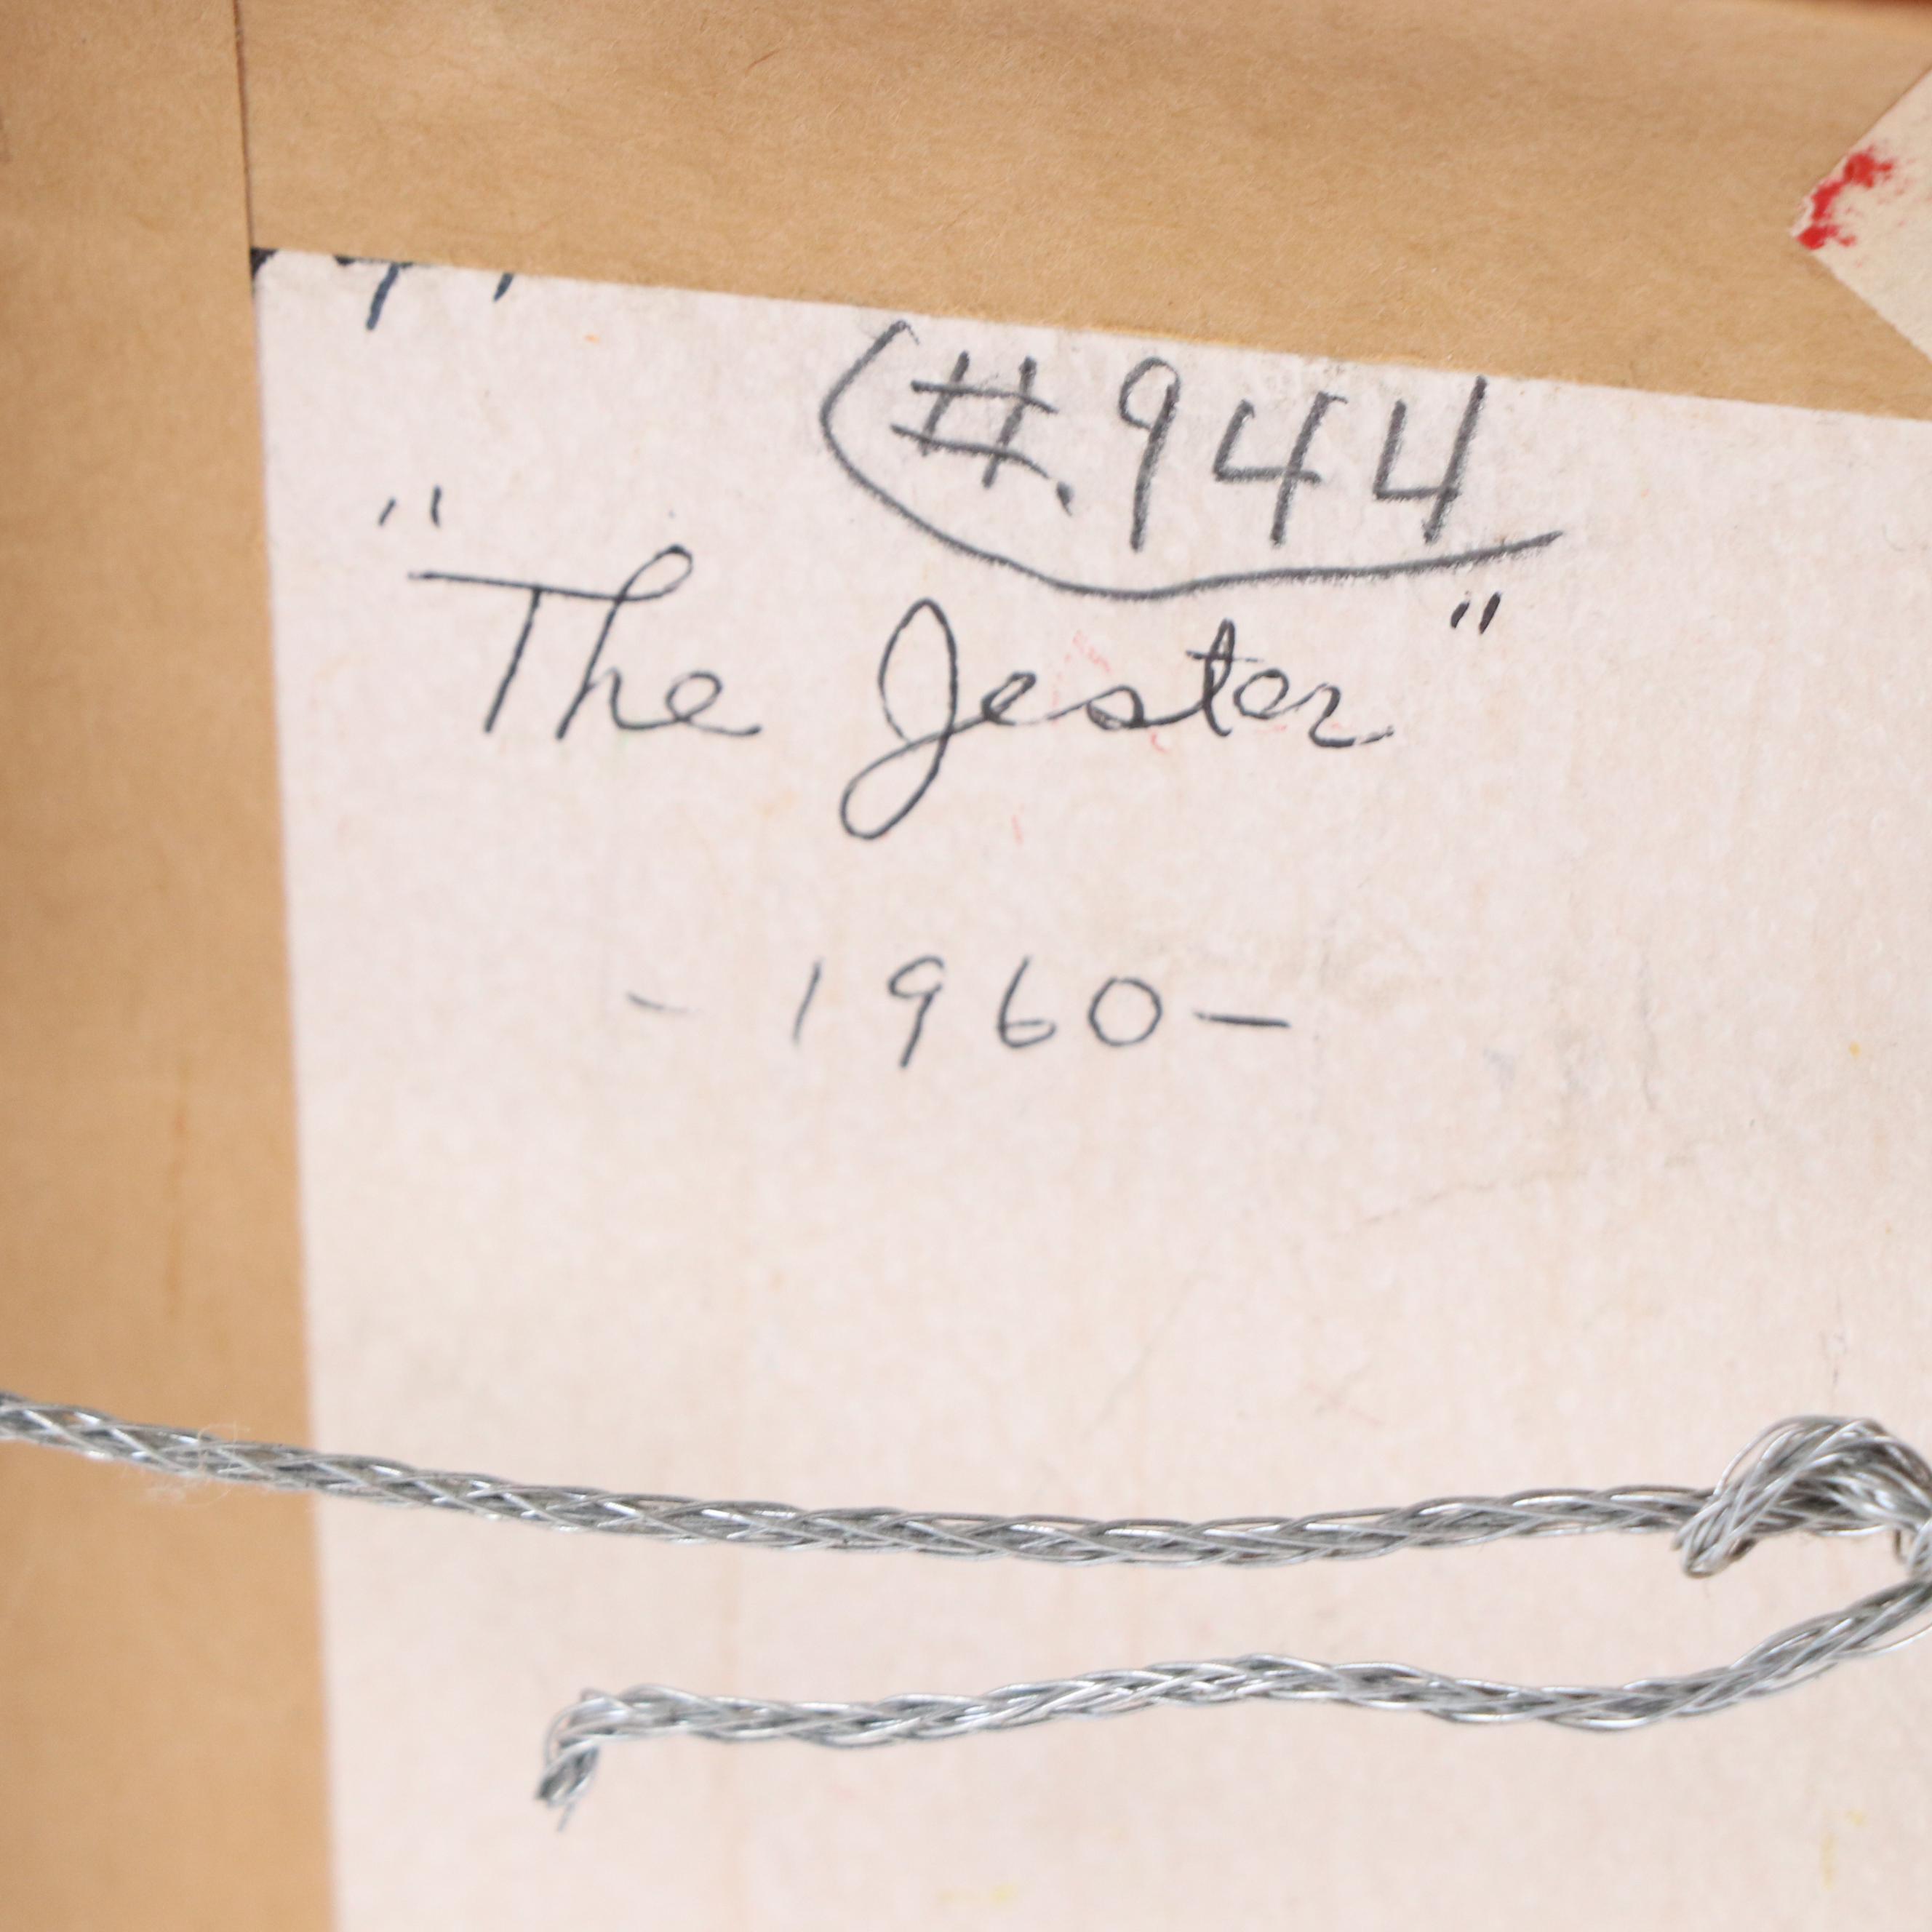 #.944
"The Jester"
- 1960 -